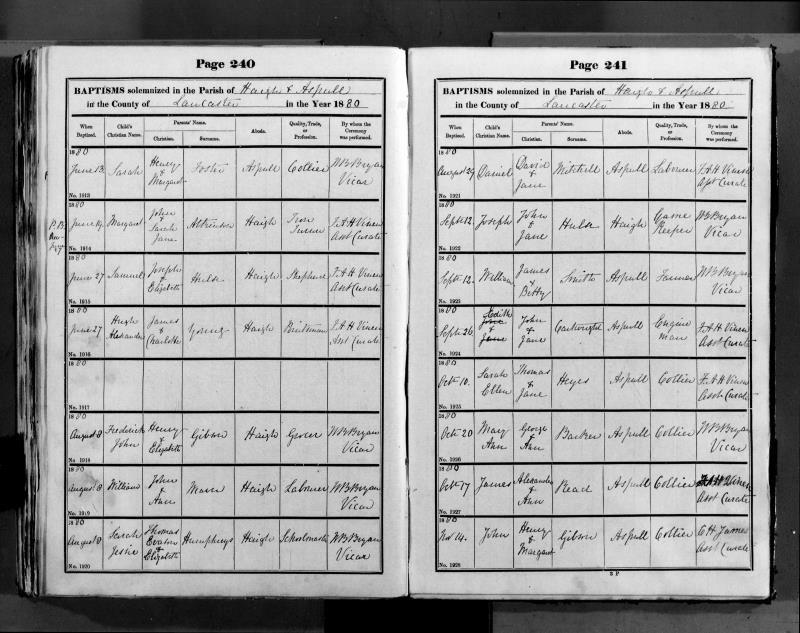 Page 240
BAPTISMS solemnized in the Parish of Haigh & Aspull
in the County of Lancaster in the Year 1880
When Baptized. Child's Christian Name. Parents' Name. Christian. Surname. Abode. Quality, Trade, or Profession. By whom the Ceremony was performed.
1880
June 13. Sarah Henry & Margaret Foster Aspull Collier WB Bryan Vicar
No. 1913
1880
June 19. Margaret John Sarah Jane Haigh Iron Turner F.A H Vinen Asst Curate
No. 1914
1880
June 27 Samuel Joseph & Elizabeth Hulse Haigh F.A H Vinen Asst Curate
No. 1915
1880
June 27 Hugh Alexander James & Charlotte Young Haigh F.A H Vinen Asst Curate
No. 1916
1880
No. 1917
1880
August 8 Frederick John Henry & Elizabeth Gibson Haigh Grocer WB Bryan Vicar
No. 1918
1880
August 8 William John & Ann Haigh Laborer WB Bryan Vicar
No. 1919
1880
August 8 Sarah Jessie Thomas Evason & Elizabeth Humphreys Haigh Schoolmaster WB Bryan Vicar
No. 1920
Page 241
BAPTISMS solemnized in the Parish of Haigh & Aspull
in the County of Lancaster in the Year 1880
When Baptized. Child's Christian Name. Parents' Name. Christian. Surname. Abode. Quality, Trade, or Profession. By whom the Ceremony was performed.
1880
August 29 Daniel David & Jane Mitchell Aspull Laborer F.A H Vinen Asst Curate
No. 1921
1880
Sept 12. Joseph John & Jane Hulse Haigh Game Keeper WB Bryan Vicar
No. 1922
1880
Sept 12. William James & Betty Smith Aspull Farmer WB Bryan Vicar
No. 1923
1880
Sept 26. Edith Jane John & Jane Cartwright Aspull Engine man F.A H Vinen Asst Curate
No. 1924
1880
Oct 10. Sarah Ellen Thomas & Jane Heyes Aspull Collier F.A H Vinen Asst Curate
No. 1925
1880
Oct 20 Mary Ann George & Ann Barker Aspull Collier WB Bryan Vicar
No. 1926
1880
Oct 17 James Alexander & Ann Read Aspull Collier F.A H Vinen Asst Curate
No. 1927
1880
Nov 14. John Henry & Margaret Gibson Aspull Collier C.H. James Asst Curate
No. 1928